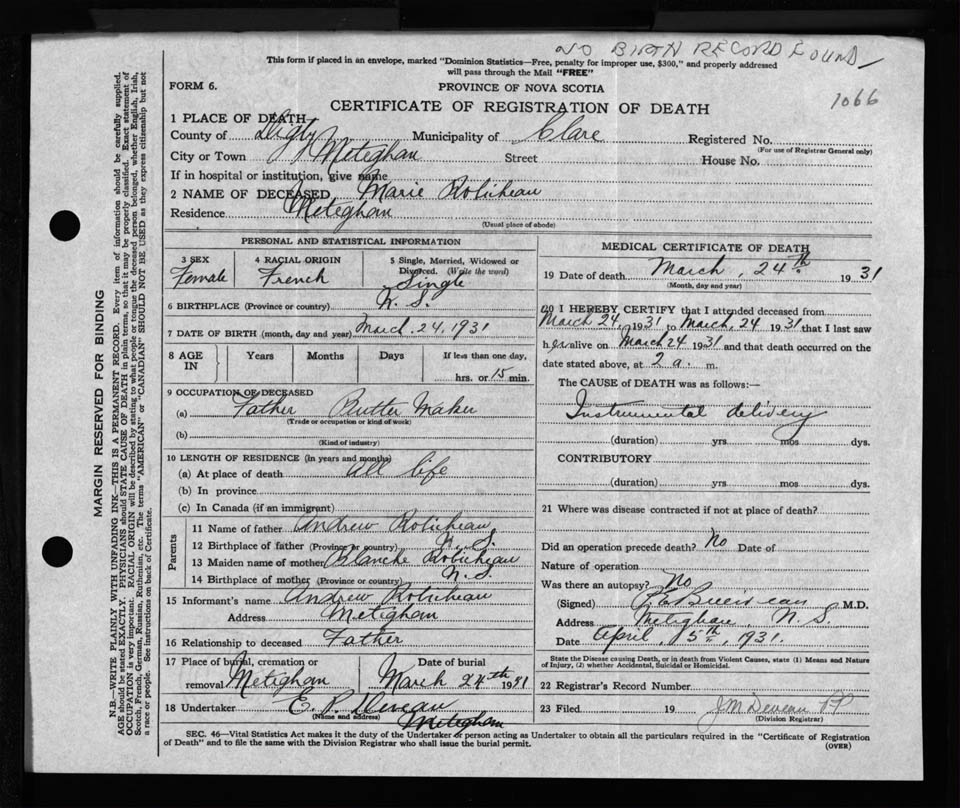 NO BIRTH RECORD FOUND
This form if placed in an envelope, marked "Dominion Statistics—Free, penalty for improper use, $300," and properly addressed
will pass through the Mail "FREE"
FORM 6.
PROVINCE OF NOVA SCOTIA
1066
CERTIFICATE OF REGISTRATION OF DEATH
1 PLACE OF DEATH
County of Digby Municipality of Clare Registered No.
(For use of Registrar General only)
City or Town Meteghan Street House No.
If in hospital or institution, give name
2 NAME OF DECEASED Marie Robicheau
Residence Meteghan
(Usual place of abode)
PERSONAL AND STATISTICAL INFORMATION
3 SEX Female
4 RACIAL ORIGIN French
5 Single, Married, Widowed or
Divorced. (Write the word)
Single
6 BIRTHPLACE (Province or country) N. S.
7 DATE OF BIRTH (month, day and year) March. 24, 1931
8 AGE IN
Years Months Days If less than one day,
hrs. or 15 min.
9 OCCUPATION OF DECEASED
(a) Father Butter Maker
(Trade or occupation or kind of work)
(b)
(Kind of industry)
10 LENGTH OF RESIDENCE (in years and months)
(a) At place of death all life
(b) In province
(c) In Canada (if an immigrant)
Parents
11 Name of father Andrew Robicheau
12 Birthplace of father (Province or country) N. S.
13 Maiden name of mother Blanche Robicheau
14 Birthplace of mother (Province or country) N. S.
15 Informant's name Andrew Robicheau
Address Meteghan
16 Relationship to deceased Father
17 Place of burial, cremation or Date of burial
removal Meteghan March 24th 1931
18 Undertaker E. P. Deveau
(Name and address)
Meteghan
MEDICAL CERTIFICATE OF DEATH
19 Date of death March, 24th 1931
(Month, day and year)
20 I HEREBY CERTIFY that I attended deceased from
March 24, 1931 to March, 24 1931 that I last saw
her alive on March 24 1931 and that death occurred on the
date stated above, at 2 a. m.
The CAUSE of DEATH was as follows:—
Instrumental delivery
(duration) yrs mos dys.
CONTRIBUTORY
(duration) yrs mos dys.
21 Where was disease contracted if not at place of death?
Did an operation precede death? No Date of
Nature of operation
Was there an autopsy? No
(Signed) M.D.
Address Meteghan, N. S.
Date April, 15th, 1931.
State the Disease causing Death, or in death from Violent Causes, state (1) Means and Nature
of Injury, (2) whether Accidental, Suicidal or Homicidal.
22 Registrar's Record Number
23 Filed 19 J M Deveau
(Division Registrar)
SEC. 46—Vital Statistics Act makes it the duty of the Undertaker or person acting as Undertaker to obtain all the particulars required in the "Certificate of Registration
of Death" and to file the same with the Division Registrar who shall issue the burial permit.
(OVER)
MARGIN RESERVED FOR BINDING
N.B.—WRITE PLAINLY WITH UNFADING INK—THIS IS A PERMANENT RECORD. Every item of information should be carefully supplied.
AGE should be stated EXACTLY. PHYSICIANS should STATE CAUSE OF DEATH in plain terms, so that it may be properly classified. Exact statement of
OCCUPATION is very important. RACIAL ORIGIN will be described by stating to what people or tongue the deceased person belonged, whether English, Irish,
Scotch, French, German, Russian, Ruthenian, etc. The terms "AMERICAN" or "CANADIAN" SHOULD NOT BE USED as they express citizenship but not
a race or people. See instructions on back of Certificate.